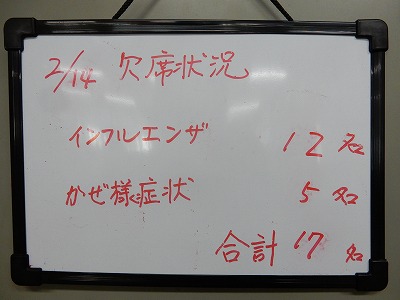 2/14 欠席状況
インフルエンザ 12名
かぜ様症状 5名
合計 17名